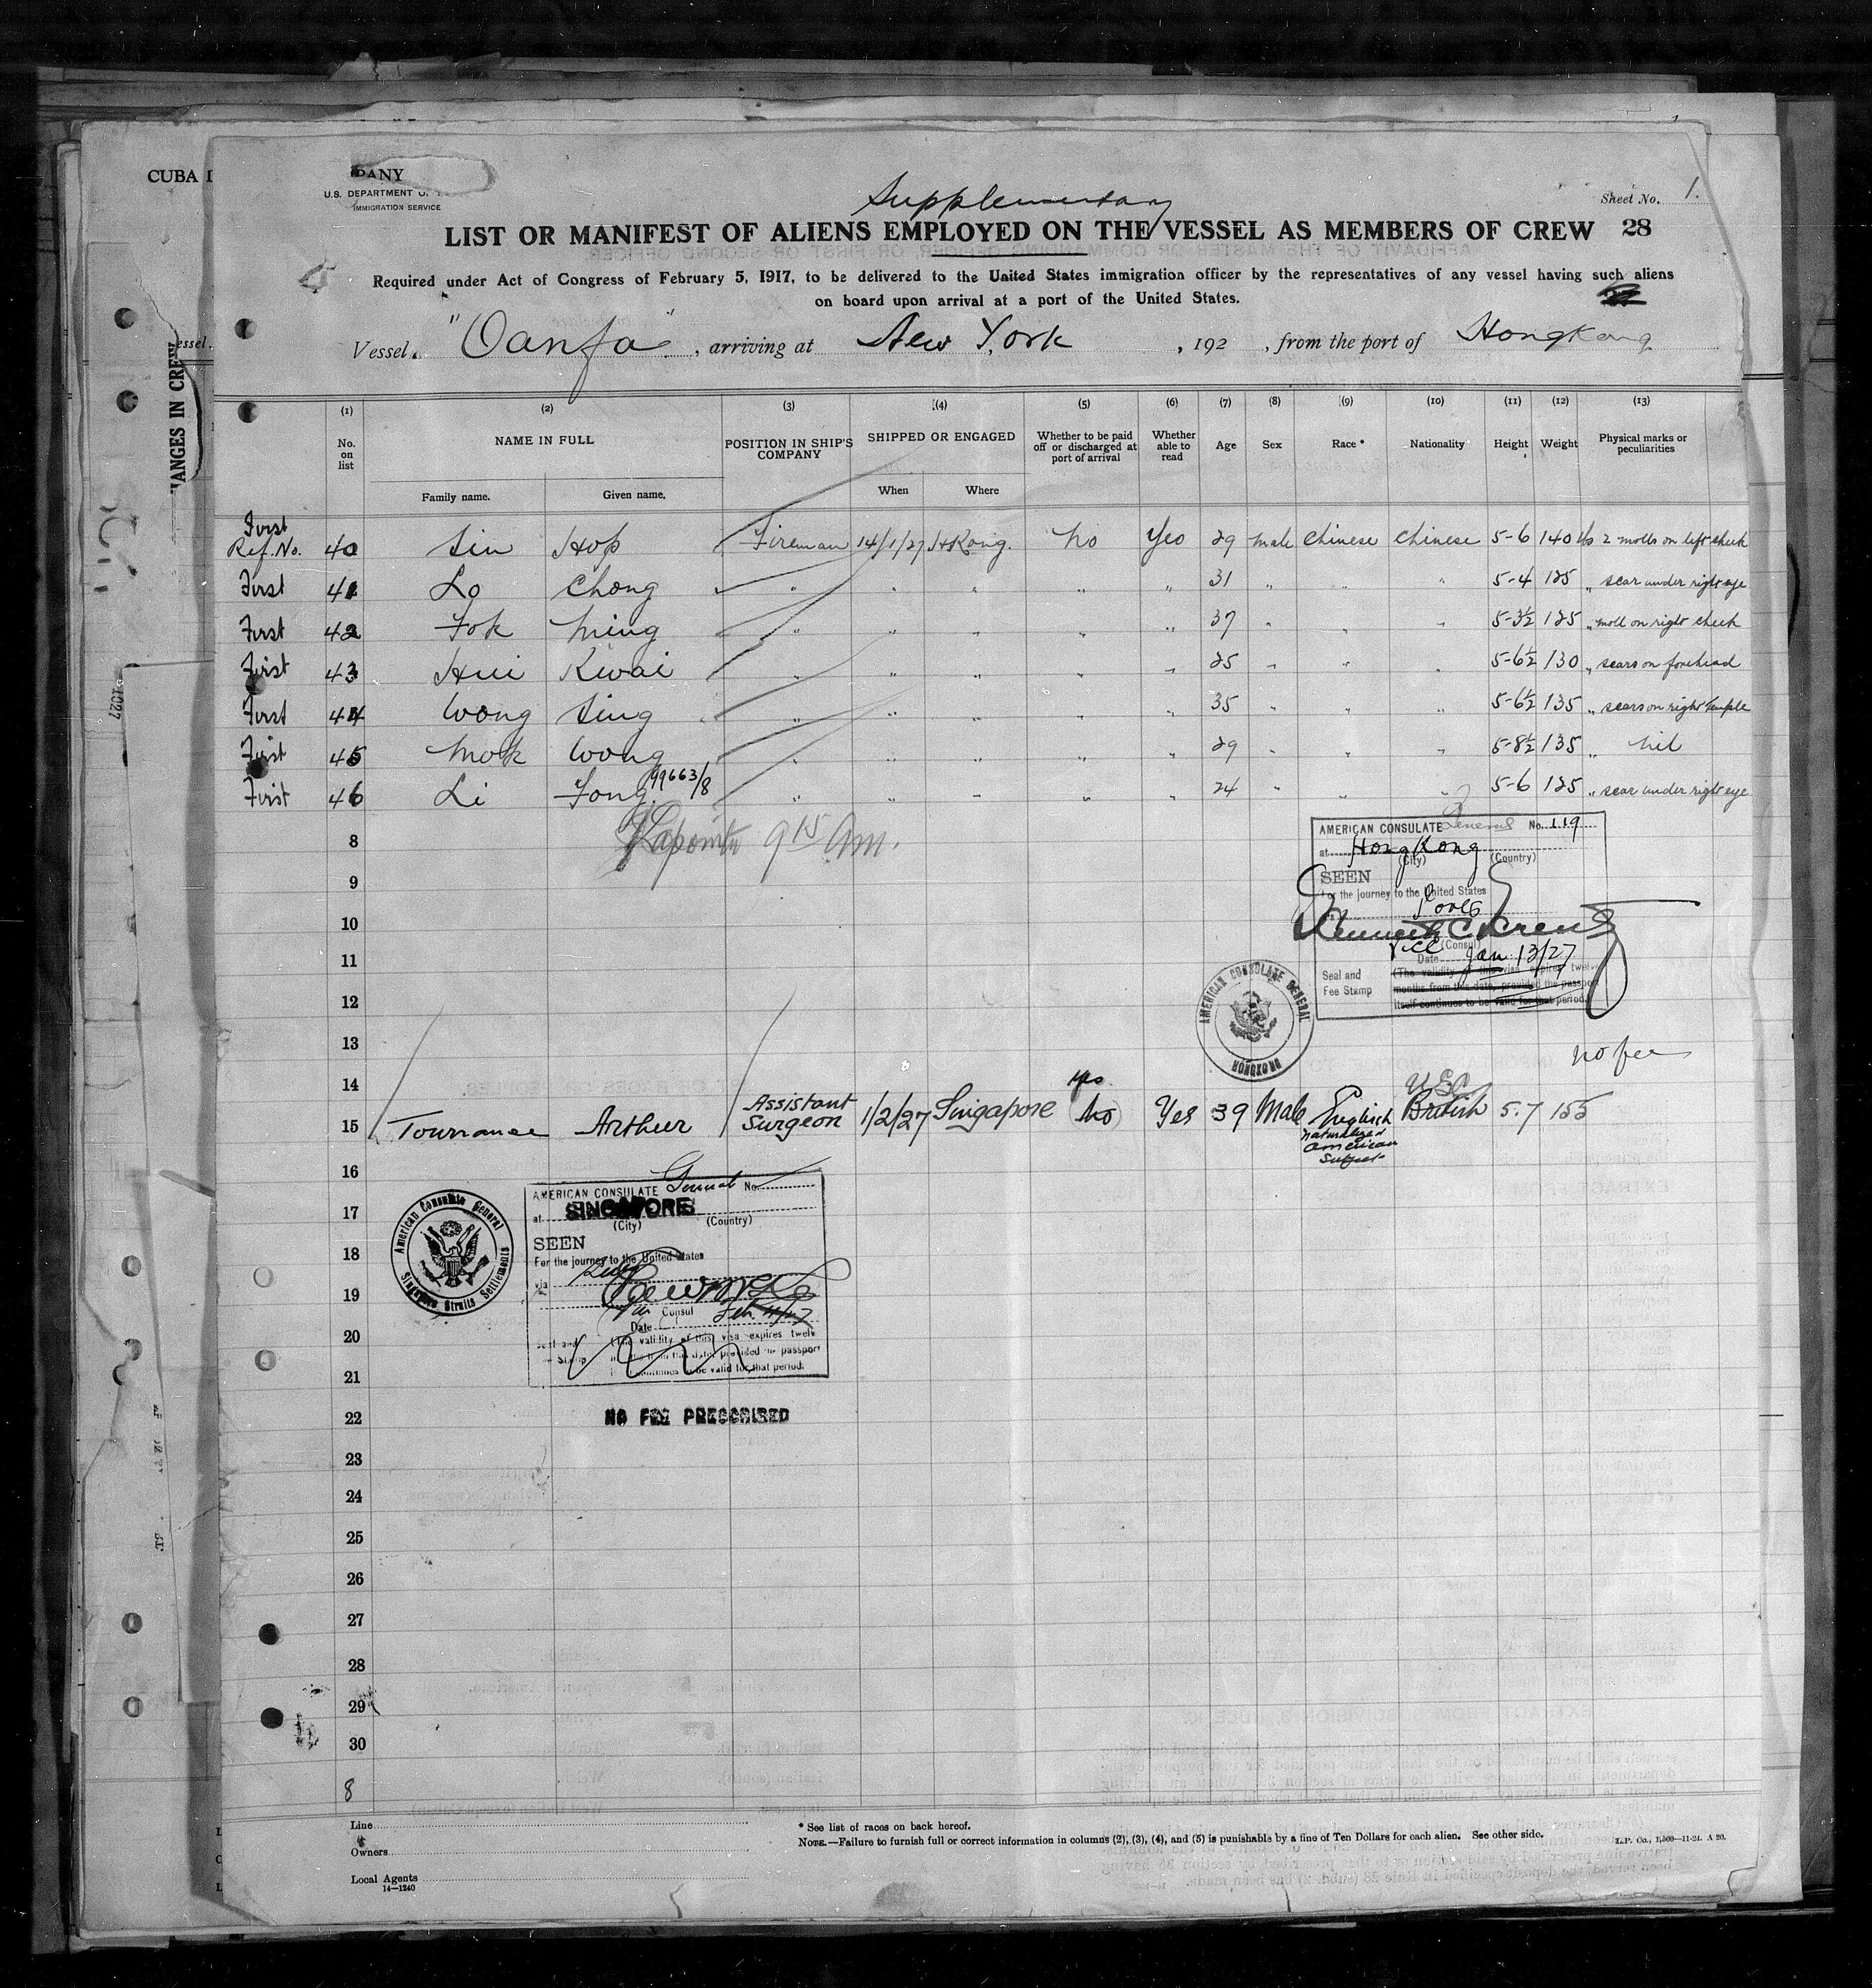 CUBA
PANY
U.S. DEPARTMENT
IMMIGRATION SERVICE
Supplementary
Sheet No. 1.
LIST OR MANIFEST OF ALIENS EMPLOYED ON THE VESSEL AS MEMBERS OF CREW 28
Required under Act of Congress of February 5, 1917, to be delivered to the United States immigration officer by the representatives of any vessel having such aliens
on board upon arrival at a port of the United States.
Vessel "Oanfa", arriving at New York, 192 , from the port of Hongkong
ANGES IN CREW
essel
(1) (2) (3) (4) (5) (6) (7) (8) (9) (10) (11) (12) (13)
No. on list NAME IN FULL POSITION IN SHIP'S COMPANY SHIPPED OR ENGAGED Whether to be paid off or discharged at port of arrival Whether able to read Age Sex Race * Nationality Height Weight Physical marks or peculiarities
Family name. Given name. When Where
First
Ref. No. 40 Sin Hop Fireman 14/1/27 H Kong. No Yes 29 male Chinese Chinese 5-6 140 lbs 2 molls on left cheek
First 41 Lo Chong " " " " " 31 " " " 5-4 125 " scar under right eye
First 42 Fok Ming " " " " " 37 " " " 5-3½ 125 " moll on right cheek
First 43 Hui Kwai " " " " " 25 " " " 5-6½ 130 " scars on forehead
First 44 Wong Sing " " " " " 35 " " " 5-6½ 135 " scars on right temple
First 45 Mok Wong " " " " " 29 " " " 5-8½ 135 " nil
First 46 Li Fong " " " " " 24 " " " 5-6 125 " scar under right eye
99663/8
9 15 Am.
8
9
10
11
12
13
14
AMERICAN CONSULATE General No. 119
at HongKong
(City) (Country)
SEEN
For the journey to the United States
Vice (Consul)
Date Jan 13/27
Seal and Fee Stamp
(The validity of this visa expires twelve
months from this date, provided the passport
itself continues to be valid for that period.
AMERICAN CONSULATE GENERAL
HONGKONG
no fee
yes
USC
15 Torrance Arthur Assistant Surgeon 1/2/27 Singapore No Yes 39 Male English British 5.7 155
naturalized
American
Subject
16
17
18
19
20
21
22
AMERICAN CONSULATE General No.
at SINGAPORE
(City) (Country)
SEEN
For the journey to the United States
via
Consul
Date
(The validity of this visa expires twelve
provided the passport
be valid for that period.
American Consulate General
Singapore Straits Settlements
NO FEE PRESCRIBED
23
24
25
26
27
28
29
30
8
Line
Owners
Local Agents
14—1240
* See list of races on back hereof.
NOTE.—Failure to furnish full or correct information in columns (2), (3), (4), and (5) is punishable by a fine of Ten Dollars for each alien. See other side.
L.P. Co., 1,500—11-24. A 20.